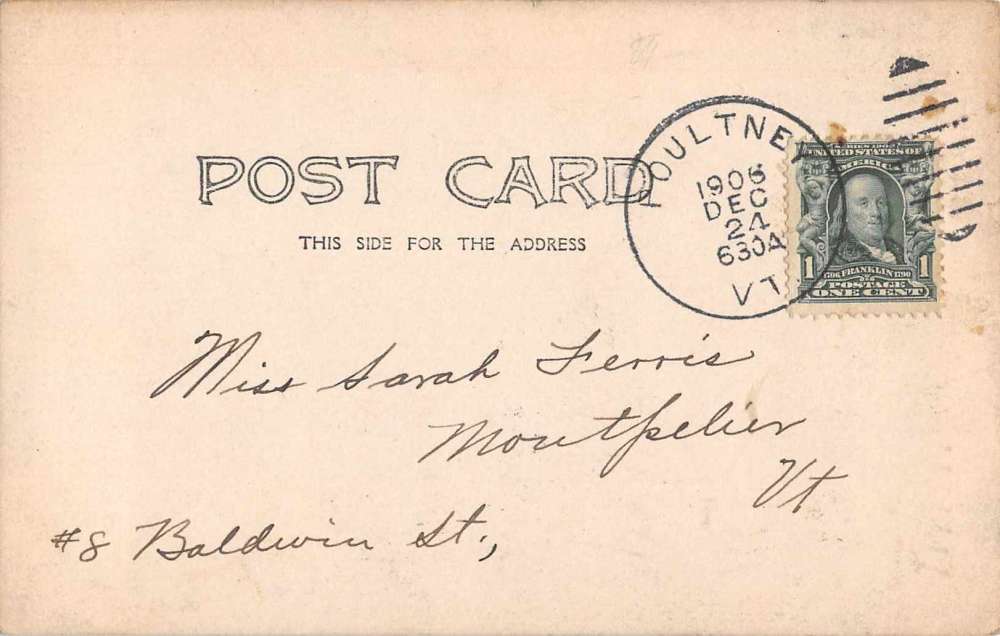 POST CARD
THIS SIDE FOR THE ADDRESS
POULTNEY
1906
DEC
24
630A
VT
SERIES 1902
UNITED STATES OF
AMERICA
1 1706 FRANKLIN 1790 1
POSTAGE
ONE CENT
Miss Sarah Ferris
Montpelier
Vt
#8 Baldwin St.,